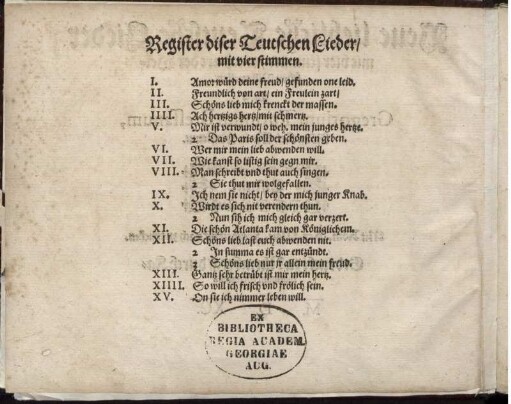 Register diser Teutschen Lieder/
mit vier stimmen.
I. Amor würd deine freud/ gefunden one leid.
II. Freundlich von art/ ein Freulein zart/
III. Schöns lieb mich krenckt der massen.
IIII. Ach hertzigs hertz/ mit schmertz.
V. Mir ist verwundt/ o weh. mein junges hertze.
2 Das Paris soll der schönsten geben.
VI. Wer mir mein lieb abwenden will.
VII. Wie kanst so listig sein gegn mir.
VIII. Man schreibt vnd thut auch singen.
2 Sie thut mir wolgefallen.
IX. Ich nem sie nicht/ bey der mich junger Knab.
X. Wirdt es sich nit verendern thun.
2 Nun sih ich mich gleich gar verzert.
XI. Die schön Atlanta kam von Königlichem.
XII. Schöns lieb last euch abwenden nit.
2 In summa es ist gar entzündt.
2 Schöns lieb nur jr allein mein freud.
XIII. Gantz sehr betrübt ist mir mein hertz.
XIIII. So will ich frisch vnd frölich sein.
XV. On sie ich nimmer leben will.
EX
BIBLIOTHECA
REGIA ACADEM.
GEORGIAE
AUG.